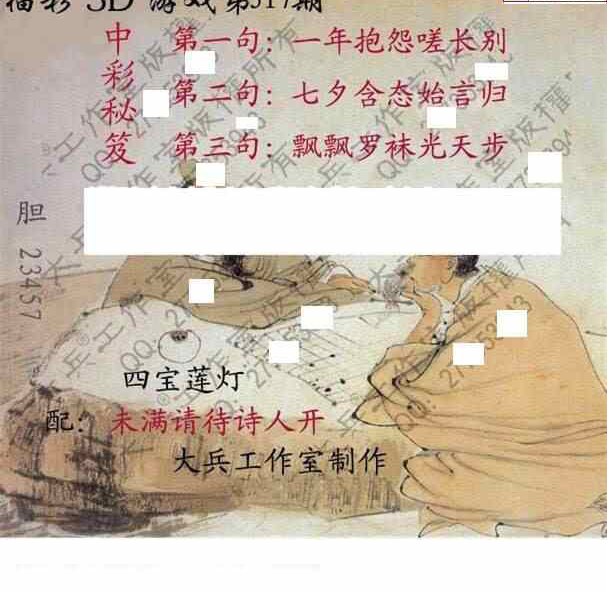 福彩 3D 游戏第317期
中彩秘笈
第一句：一年抱怨嗟长别
第二句：七夕含态始言归
第三句：飘飘罗袜光天步
胆 23457
四宝莲灯
配：未满请待诗人开
大兵工作室制作